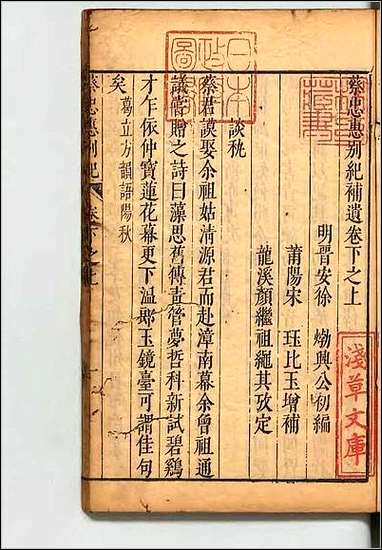 蔡忠惠別紀補遺卷下之上
明晉安徐㶿興公初編
莆陽宋珏比玉增補
龍溪顏繼祖繩其攷定
談秇
蔡君謨娶余祖姑清源君而赴漳南幕余曾祖通
議嘗贈之詩曰藻思舊傳青管夢哲科新試碧鷄
才乍依仲寶蓮花幕更下溫郎玉鏡臺可謂佳句
矣葛立方韻語陽秋
蔡忠惠別紀 卷下之上
淺草文庫
日本政府圖書